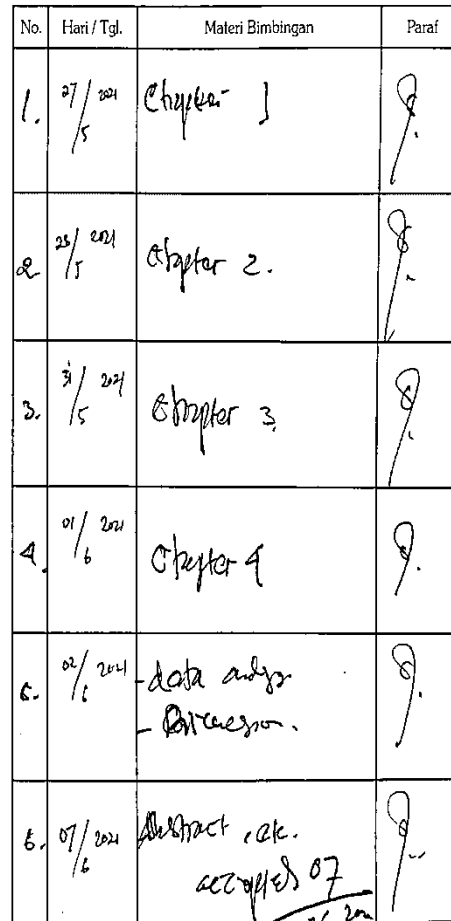 No. Hari / Tgl. Materi Bimbingan Paraf
1. 27/5 2021 Chapter 1
2. 28/5 2021 Chapter 2.
3. 31/5 2021 Chapter 3.
4. 01/6 2021 Chapter 4
5. 02/6 2021 - data
6. 07/6 2021 Abstract, etc.
accepted 07